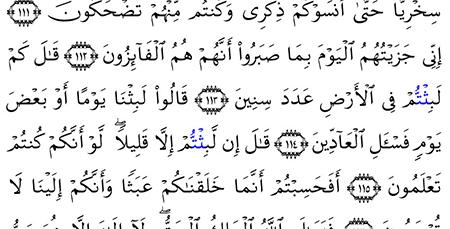 سِخْرِيًّا حَتَّىٰٓ أَنسَوْكُمْ ذِكْرِى وَكُنتُم مِّنْهُمْ تَضْحَكُونَ ١١١
إِنِّى جَزَيْتُهُمُ ٱلْيَوْمَ بِمَا صَبَرُوٓا۟ أَنَّهُمْ هُمُ ٱلْفَآئِزُونَ ١١٢ قَٰلَ كَمْ
لَبِثْتُمْ فِى ٱلْأَرْضِ عَدَدَ سِنِينَ ١١٣ قَالُوا۟ لَبِثْنَا يَوْمًا أَوْ بَعْضَ
يَوْمٍ فَسْـَٔلِ ٱلْعَآدِّينَ ١١٤ قَٰلَ إِن لَّبِثْتُمْ إِلَّا قَلِيلًا ۖ لَّوْ أَنَّكُمْ كُنتُمْ
تَعْلَمُونَ ١١٥ أَفَحَسِبْتُمْ أَنَّمَا خَلَقْنَٰكُمْ عَبَثًا وَأَنَّكُمْ إِلَيْنَا لَا